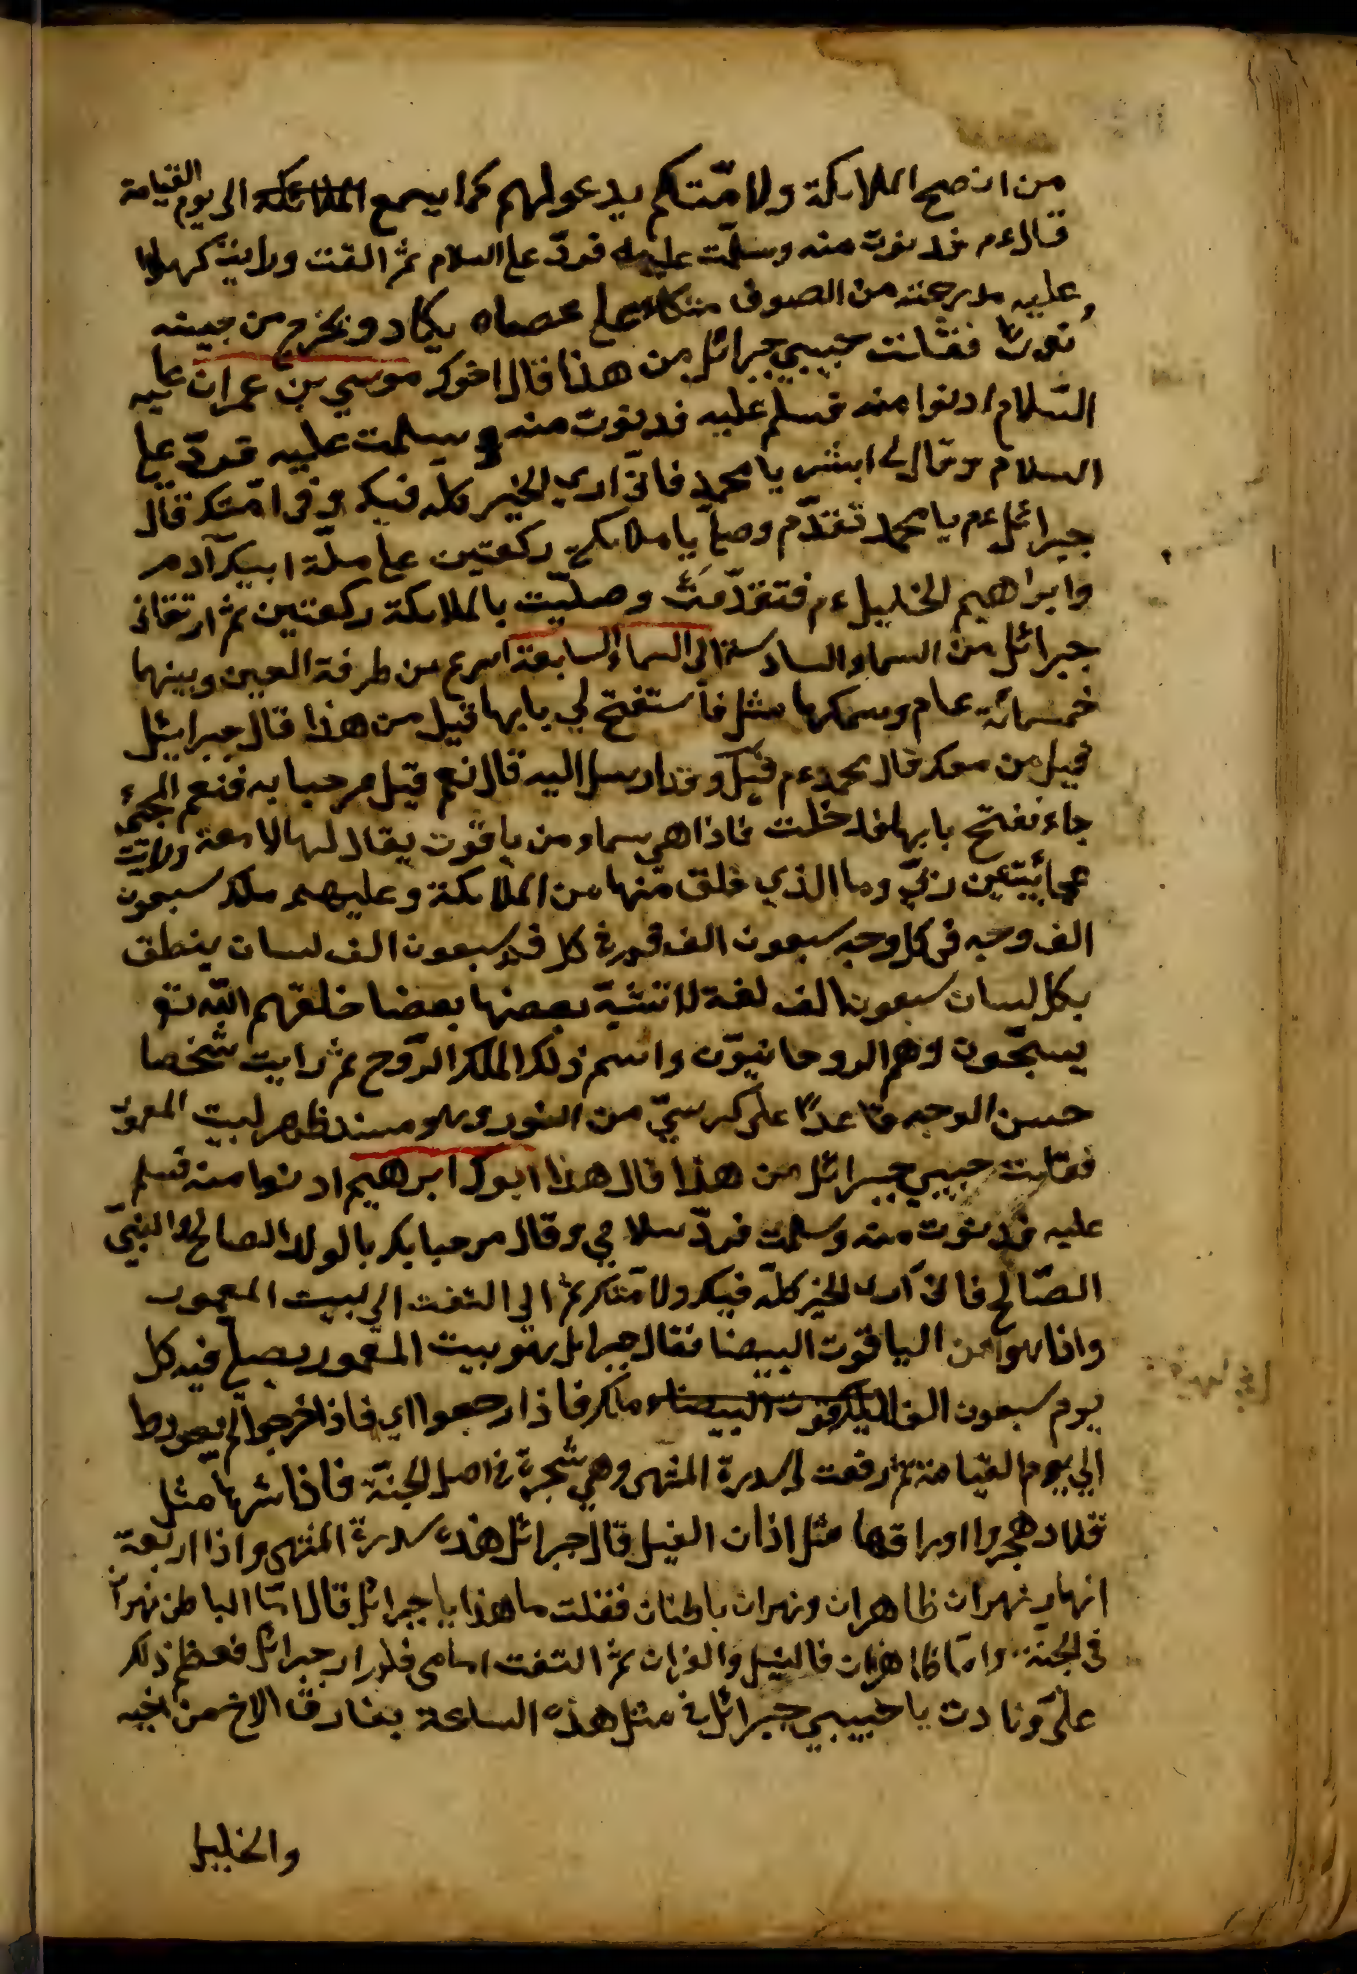 من انصح الملائكة ولامّتكم يدعولهم كما يسمع الملائكة الى يوم القيامة
قال ءم فدنوت منه وسلّمت عليه فردّ على السلام ثم التفت ورايت كهلا
وعليه مدرعته من الصوف متكاء على عصاه يكاد و يخرج من جبينه
نورا فقلت حبيبي جبرائل من هذا قال اخوك موسي بن عمران عليه
السّلام ادنوا منه فسلّم عليه فدنوت منه وسلمت عليه فردّ على
السلام وقال لى ابشر يا محمد فانّي اري الخير كلّه فيك وفى امّتك قال
جبرائل ءم يا محمد تقدّم وصلّ يا ملائكة ركعتين على ملّة ابيك آدم
وابراهيم الخليل ءم فتقدّمت وصلّيت بالملائكة ركعتين ثم ارتقانى
جبرائل من السماء السادسة الى السماء السابعة اسرع من طرفة العين وبينهما
خمسمائة عام وسمكها مثل فاستفتح لي بابها قيل من هذا قال جبرايئل
قيل من معك قال محمد ءم قيل وقد ارسل اليه قال نعم قيل مرحبا به فنعم المجيء
جاء نفتح بابها فدخلت فاذا هي سماء من ياقوت يقال لها لامعة ورايت
عجائب ربّي وما الذي خلق منها من الملائكة وعليهم ملك سبعون
الف وجه فى كل وجه سبعون الف فم في كل فم سبعون الف لسان ينطق
بكل لسان سبعون الف لغة لا تشبه بعضها بعضا خلقهم اللّه تع
يسبّحون وهم الروحانيّون واسم ذلك الملك الرّوح ثم رايت شخصا
حسن الوجه قاعدًا على كرسيّ من النور وهو مسند ظهر لبيت المعمور
فقلت حبيبي جبرائل من هذا قال هذا ابوك ابرهيم ادنوا منه فسلم
عليه فدنوت منه وسلمت فردّ سلامي وقال مرحبا بك بالولد الصالح والنبيّ
الصّالح فانى اري الخير كلّه فيك ولامّتك ثم الى التفت الى بيت المعمور
واذا هوا من الياقوت البيضا فقال جبرائل هو بيت المعمور يصلّي فيه كل
يوم سبعون الف الياقوت البيضاء ملك فاذا رجعوا اي فاذا خرجوا لم يعود
الي يوم القيامة ثم رفعت لى سدرة المنتهى وهي شجرة في اصل الجنّة فاذا ثمرها مثل
قلاد هجر واوراقها مثل اذان الفيل قال جبرائل هذه سدرة المنتهى واذا اربعة
انهار نهران ظاهران ونهران باطنان فقلت ما هذا يا جبرائل قال امّا الباطن نهران
فى الجنّة وامّا ظاهران فالنيل والفران ثم التفت امامى فلم ار جبرائل فعظم ذلك
علىّ ونادت يا حبيبي جبرائل في مثل هذه الساعة يفارق الاخ من اخيه
والخليل